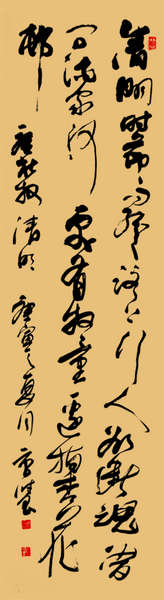 清明时节雨纷纷路上行人欲断魂借
问酒家何处有牧童遥指杏花
邨 唐杜牧清明 庚寅之夏月